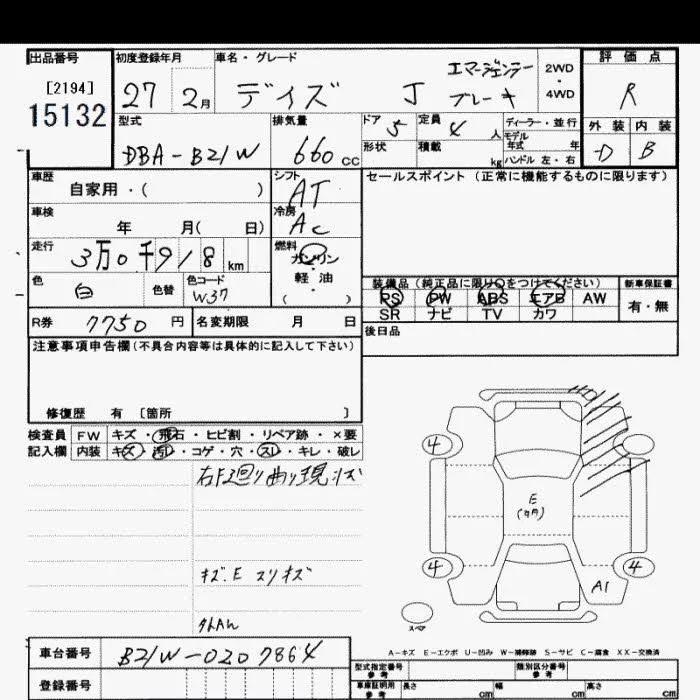 出品番号 初度登録年月 車名・グレード 評価点
[2194]
15132 27 2月 デイズ J エマージェンシーブレーキ 2WD・4WD R
型式 排気量 ドア 5 定員 4人 ディーラー・並行 外装 内装
DBA-B21W 660cc 形状 積載 kg モデル年式 年 ハンドル 左・右 -D B
車歴 自家用・( ) シフト AT セールスポイント(正常に機能するものに限ります)
車検 年 月( 日) 冷房 AC
走行 3万0千918km 燃料 ガソリン・軽油 ( )
色 白 色替 色コード W37
装備品(純正品に限り○をつけてください) 新車保証書
PS PW ABS エアB AW 有・無
SR ナビ TV カワ
R券 7750円 名変期限 月 日 後日品
注意事項申告欄(不具合内容等は具体的に記入して下さい)
修復歴 有 [箇所 ]
検査員 FW キズ・飛石・ヒビ割・リペア跡・×要
記入欄 内装 キズ・汚レ・コゲ・穴・スレ・キレ・破レ
右F廻り曲り現状
キズ.E スリキズ
4 4 4
E
A1
スペア
A-キズ E-エクボ U-凹み W-補修跡 S-サビ C-腐食 XX-交換済
車台番号 B21W-0207864
登録番号
型式指定番号 参考 類別区分番号 参考
車庫証明用 参考 長さ cm 幅 cm 高さ cm